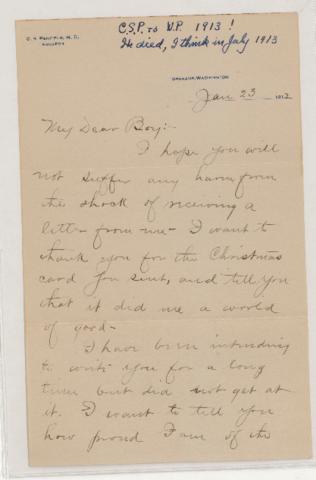 C.S.P. to V.P. 1913!
He died, I think in July 1913
M. D.
WASHINGTON
Jan 23 191
My Dear Boy:-
I hope you will
not suffer any harm from
the shock of receiving a
letter from me - I want to
thank you for the Christmas
card you sent, and tell you
that it did me a world
of good -
I have been intending
to write you for a long
time but did not get at
it. I want to tell you
how proud I am of the